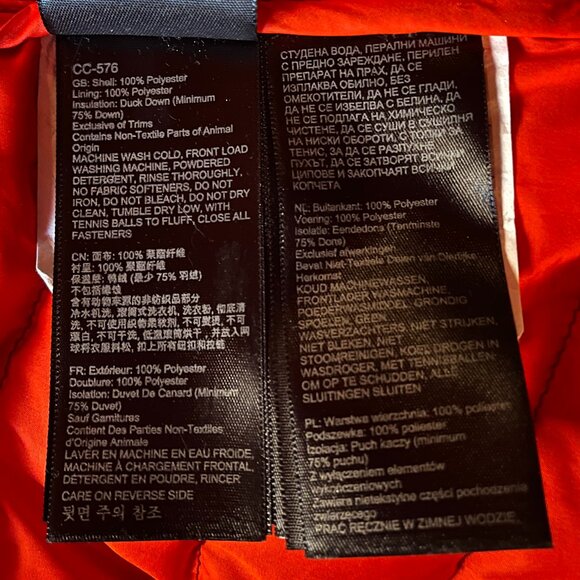 CC-576
GB: Shell: 100% Polyester
Lining: 100% Polyester
Insulation: Duck Down (Minimum
75% Down)
Exclusive of Trims
Contains Non-Textile Parts of Animal
Origin
MACHINE WASH COLD, FRONT LOAD
WASHING MACHINE, POWDERED
DETERGENT, RINSE THOROUGHLY,
NO FABRIC SOFTENERS, DO NOT
IRON, DO NOT BLEACH, DO NOT DRY
CLEAN, TUMBLE DRY LOW, WITH
TENNIS BALLS TO FLUFF, CLOSE ALL
FASTENERS
CN: 面布: 100% 聚酯纤维
衬里: 100% 聚酯纤维
保温垫: 鸭绒 (最少 75% 羽绒)
不包括缘饰
含有动物来源的非纺织品部分
冷水机洗, 滚筒式洗衣机, 洗衣粉, 彻底清
洗, 不可使用织物柔软剂, 不可熨烫, 不可
漂白, 不可干洗, 低温滚筒烘干, 并放入网
球将衣服抖松, 扣上所有纽扣和拉链
FR: Extérieur: 100% Polyester
Doublure: 100% Polyester
Isolation: Duvet De Canard (Minimum
75% Duvet)
Sauf Garnitures
Contient Des Parties Non-Textiles
d'Origine Animale
LAVER EN MACHINE EN EAU FROIDE,
MACHINE À CHARGEMENT FRONTAL,
DÉTERGENT EN POUDRE, RINCER
CARE ON REVERSE SIDE
뒷면 주의 참조
СТУДЕНА ВОДА, ПЕРАЛНИ МАШИНИ
С ПРЕДНО ЗАРЕЖДАНЕ, ПЕРИЛЕН
ПРЕПАРАТ НА ПРАХ, ДА СЕ
ИЗПЛАКВА ОБИЛНО, БЕЗ
ОМЕКОТИТЕЛИ, ДА НЕ СЕ ГЛАДИ,
ДА НЕ СЕ ИЗБЕЛВА С БЕЛИНА, ДА
НЕ СЕ ПОДЛАГА НА ХИМИЧЕСКО
ЧИСТЕНЕ, ДА СЕ СУШИ В СУШИЛНЯ
НА НИСКИ ОБОРОТИ, С ТОПКИ ЗА
ТЕНИС, ЗА ДА СЕ РАЗПУХНЕ
ПУХЪТ, ДА СЕ ЗАТВОРЯТ ВСИЧКИ
ЦИПОВЕ И ЗАКОПЧАЯТ ВСИЧКИ
КОПЧЕТА
NL: Buitenkant: 100% Polyester
Voering: 100% Polyester
Isolatie: Eendedons (Tenminste
75% Dons)
Exclusief afwerkingen
Bevat Niet-Textiele Delen van Dierlijke
Herkomst
KOUD MACHINEWASSEN,
FRONTLADER WASMACHINE,
POEDERWASMIDDEL, GRONDIG
SPOELEN, GEEN
WASVERZACHTER, NIET STRIJKEN,
NIET BLEKEN, NIET
STOOMREINIGEN, KOEL DROGEN IN
WASDROGER, MET TENNISBALLEN
OM OP TE SCHUDDEN, ALLE
SLUITINGEN SLUITEN
PL: Warstwa wierzchnia: 100% poliester
Podszewka: 100% poliester
Izolacja: Puch kaczy (minimum
75% puchu)
Z wyłączeniem elementów
wykończeniowych
Zawiera nietekstylne części pochodzenia
zwierzęcego
PRAĆ RĘCZNIE W ZIMNEJ WODZIE,